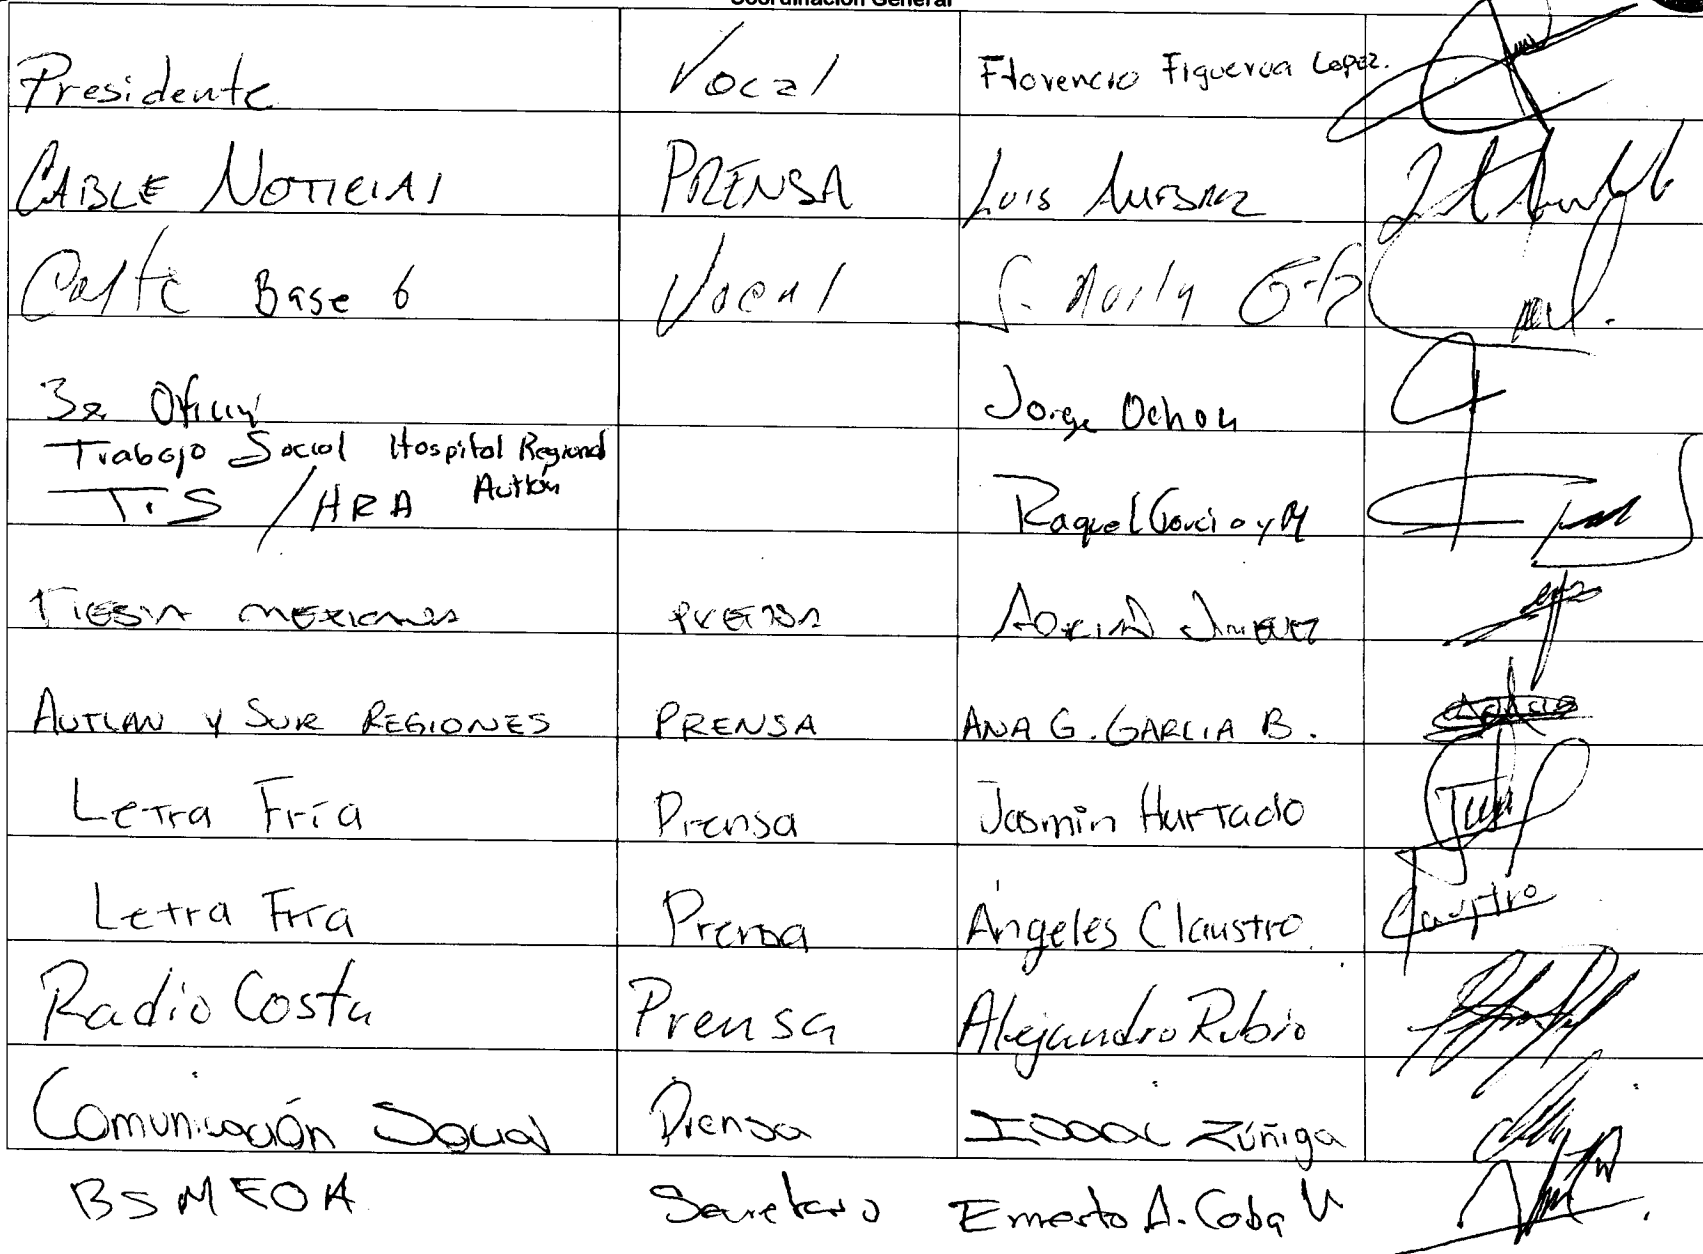 Coordinación General
Presidente Vocal Florencio Figueroa Lopez.
CABLE NOTICIAS PRENSA LUIS
Base 6 Vocal
Jorge Ochoa
Trabajo Social Hospital Regional
Autlán
T.S /HRA Raquel García y M
MEXICANA PRENSA ADRIAN JIMENEZ
AUTLAN Y SUR REGIONES PRENSA ANA G. GARCIA B.
Letra Fría Prensa Jasmin Hurtado
Letra Fría Prensa Ángeles Claustro
Radio Costa Prensa Alejandro Rubio
Comunicación Social Prensa Isaac Zúñiga
BSMEOA Secretario Ernesto A. Coba V